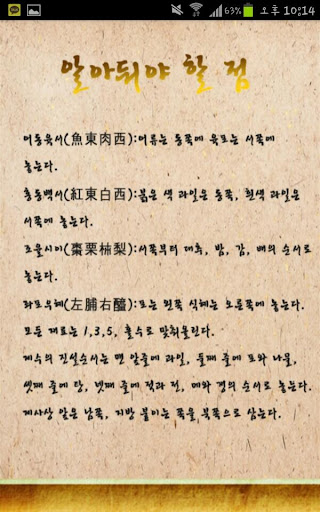 63% 오후 10:14
알아둬야 할 점
어동육서(魚東肉西):어류는 동쪽에 육포는 서쪽에
놓는다.
홍동백서(紅東白西):붉은 색 과일은 동쪽, 흰색 과일은
서쪽에 놓는다.
조율시이(棗栗柿梨):서쪽부터 대추, 밤, 감, 배의 순서로
놓는다.
좌포우혜(左脯右醯):포는 왼쪽 식혜는 오른쪽에 놓는다.
모든 재료는 1,3,5, 홀수로 맞춰올린다.
계수의 진설순서는 맨 앞줄에 과일, 둘째 줄에 포와 나물,
셋째 줄에 탕, 넷째 줄에 적과 전, 메와 갱의 순서로 놓는다.
제사상 앞은 남쪽, 지방 붙이는 쪽을 북쪽으로 삼는다.